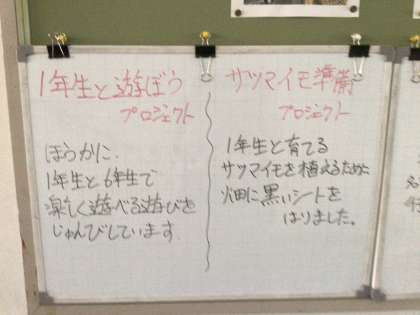 1年生と遊ぼう
プロジェクト
ほうかに、
1年生と6年生で
楽しく遊べる遊びを
じゅんびしています。
サツマイモ準備
プロジェクト
1年生と育てる
サツマイモを植えるために
畑に黒いシートを
はりました。